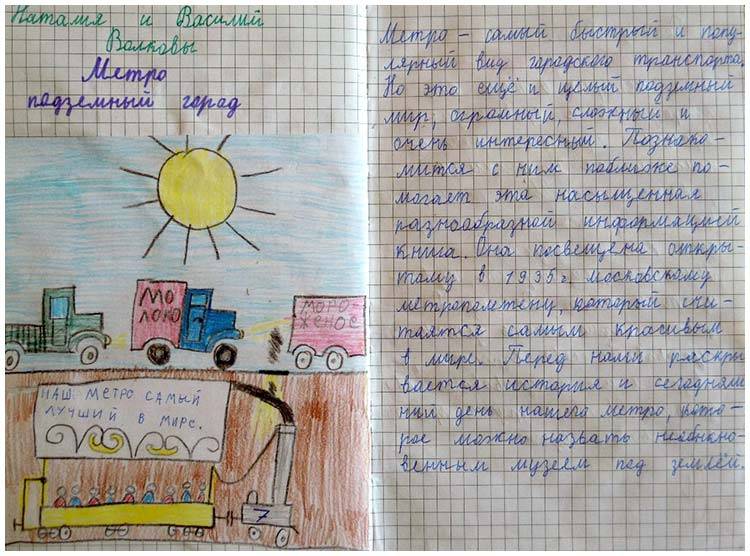 Наталия и Василий
Волковы
Метро
подземный город
МО
ЛОКО
МОРО
ЖЕНОЕ
НАШ МЕТРО САМЫЙ
ЛУЧШИЙ В МИРЕ.
7
Метро – самый быстрый и попу-
лярный вид городского транспорта.
Но это ещё и целый подземный
мир, огромный, сложный и
очень интересный. Познако-
мится с ним поближе по-
могает эта насыщенная
разнообразной информацией
книга. Она посвещена откры-
тому в 1935 г. московскому
метрополетену, который счи-
таятся самым красивым
в мире. Перед нами раскры
вается история и сегодняш
ний день нашего метро, кото-
рое можно назвать необыкно-
венным музеем под землёй.